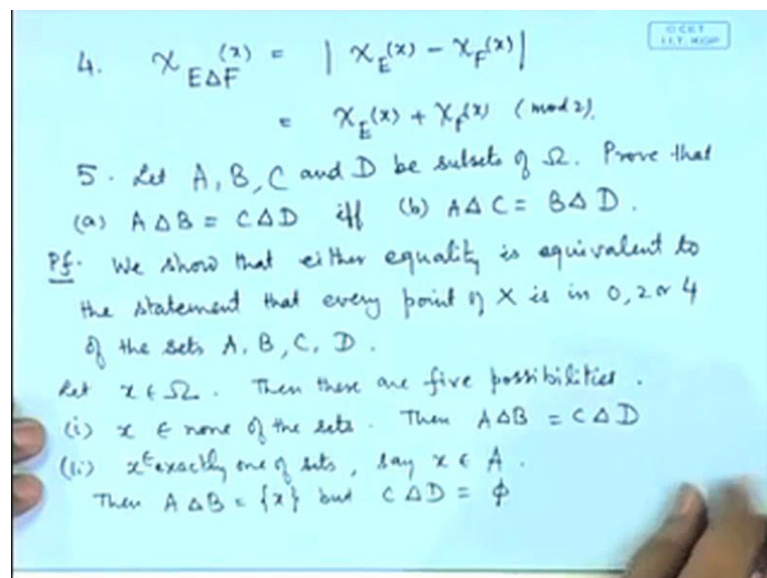 4. χ_{E∆F}(x) = | χ_E(x) - χ_F(x) |
= χ_E(x) + χ_F(x) (mod 2).
5. Let A, B, C and D be subsets of Ω. Prove that
(a) A ∆ B = C ∆ D iff (b) A ∆ C = B ∆ D.
Pf. We show that either equality is equivalent to
the statement that every point of X is in 0, 2 or 4
of the sets A, B, C, D.
Let x ∈ Ω. Then there are five possibilities.
(i) x ∈ none of the sets. Then A∆B = C∆D
(ii) x ∈ exactly one of sets, say x ∈ A.
Then A∆B = {x} but C∆D = ϕ
I.I.T. KGP